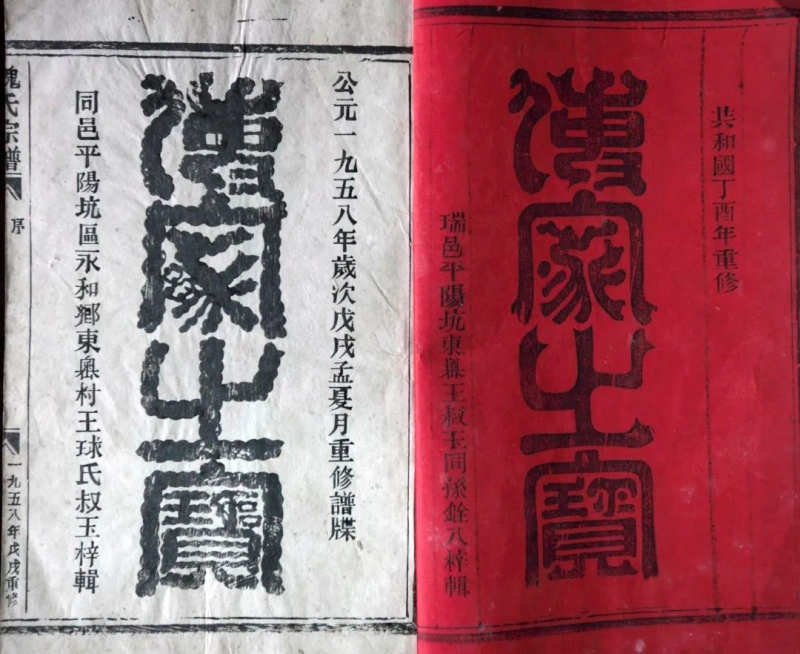 共和國丁酉年重修
傳家之寶
瑞邑平陽坑東㟲王叔玉同孫銓八梓輯
公元一九五八年歲次戊戌孟夏月重修譜牒
傳家之寶
同邑平陽坑區永和鄉東㟲村王球氏叔玉梓輯
魏氏宗譜
序
一九五八年戊戌重修